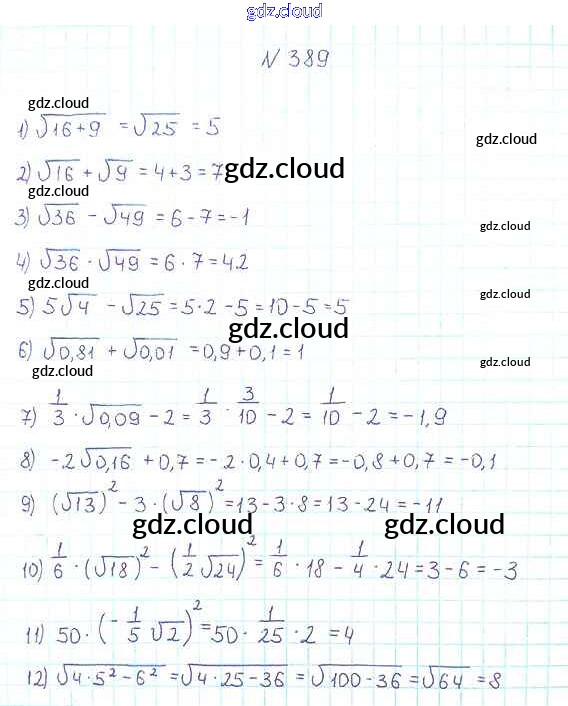 gdz.cloud
N 389
gdz.cloud
1) √16+9 = √25 = 5
gdz.cloud
2) √16 + √9 = 4+3 = 7
gdz.cloud
gdz.cloud
3) √36 - √49 = 6-7 = -1
gdz.cloud
4) √36 · √49 = 6 · 7 = 42
gdz.cloud
gdz.cloud
5) 5√4 - √25 = 5·2 - 5 = 10 - 5 = 5
gdz.cloud
6) √0,81 + √0,01 = 0,9 + 0,1 = 1
gdz.cloud
gdz.cloud
7) 1/3 · √0,09 - 2 = 1/3 · 3/10 - 2 = 1/10 - 2 = -1,9
8) -2√0,16 + 0,7 = -2·0,4+0,7 = -0,8+0,7 = -0,1
9) (√13)² - 3·(√8)² = 13-3·8 = 13-24 = -11
gdz.cloud
gdz.cloud
10) 1/6 · (√18)² - (1/2 √24)² = 1/6 · 18 - 1/4 · 24 = 3-6 = -3
11) 50 · (- 1/5 √2)² = 50 · 1/25 · 2 = 4
gdz.cloud
12) √4·5²-6² = √4·25-36 = √100-36 = √64 = 8